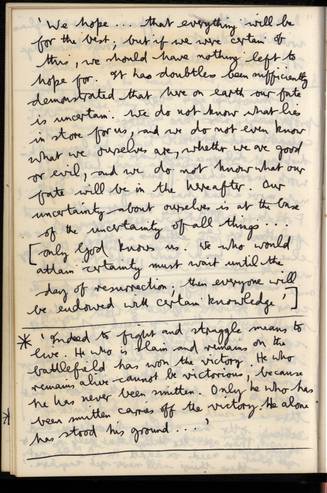 'We hope ... that everything will be
for the best; but if we were certain of
this, we should have nothing left to
hope for. It has doubtless been sufficiently
demonstrated that here on earth our fate
is uncertain. We do not know what lies
in store for us, and we do not even know
what we ourselves are, whether we are good
or evil, and we do not know what our
fate will be in the hereafter. Our
uncertainty about ourselves is at the base
of the uncertainty of all things ...
[only God knows us. We who would
attain certainty must wait until the
day of resurrection; then everyone will
be endowed with certain knowledge']
* 'Indeed to fight and struggle means to
live. He who is slain and remains on the
battlefield has won the victory. He who
remains alive cannot be victorious, because
he has never been smitten. Only he who has
* been smitten carries off the victory. He alone
has stood his ground ...'